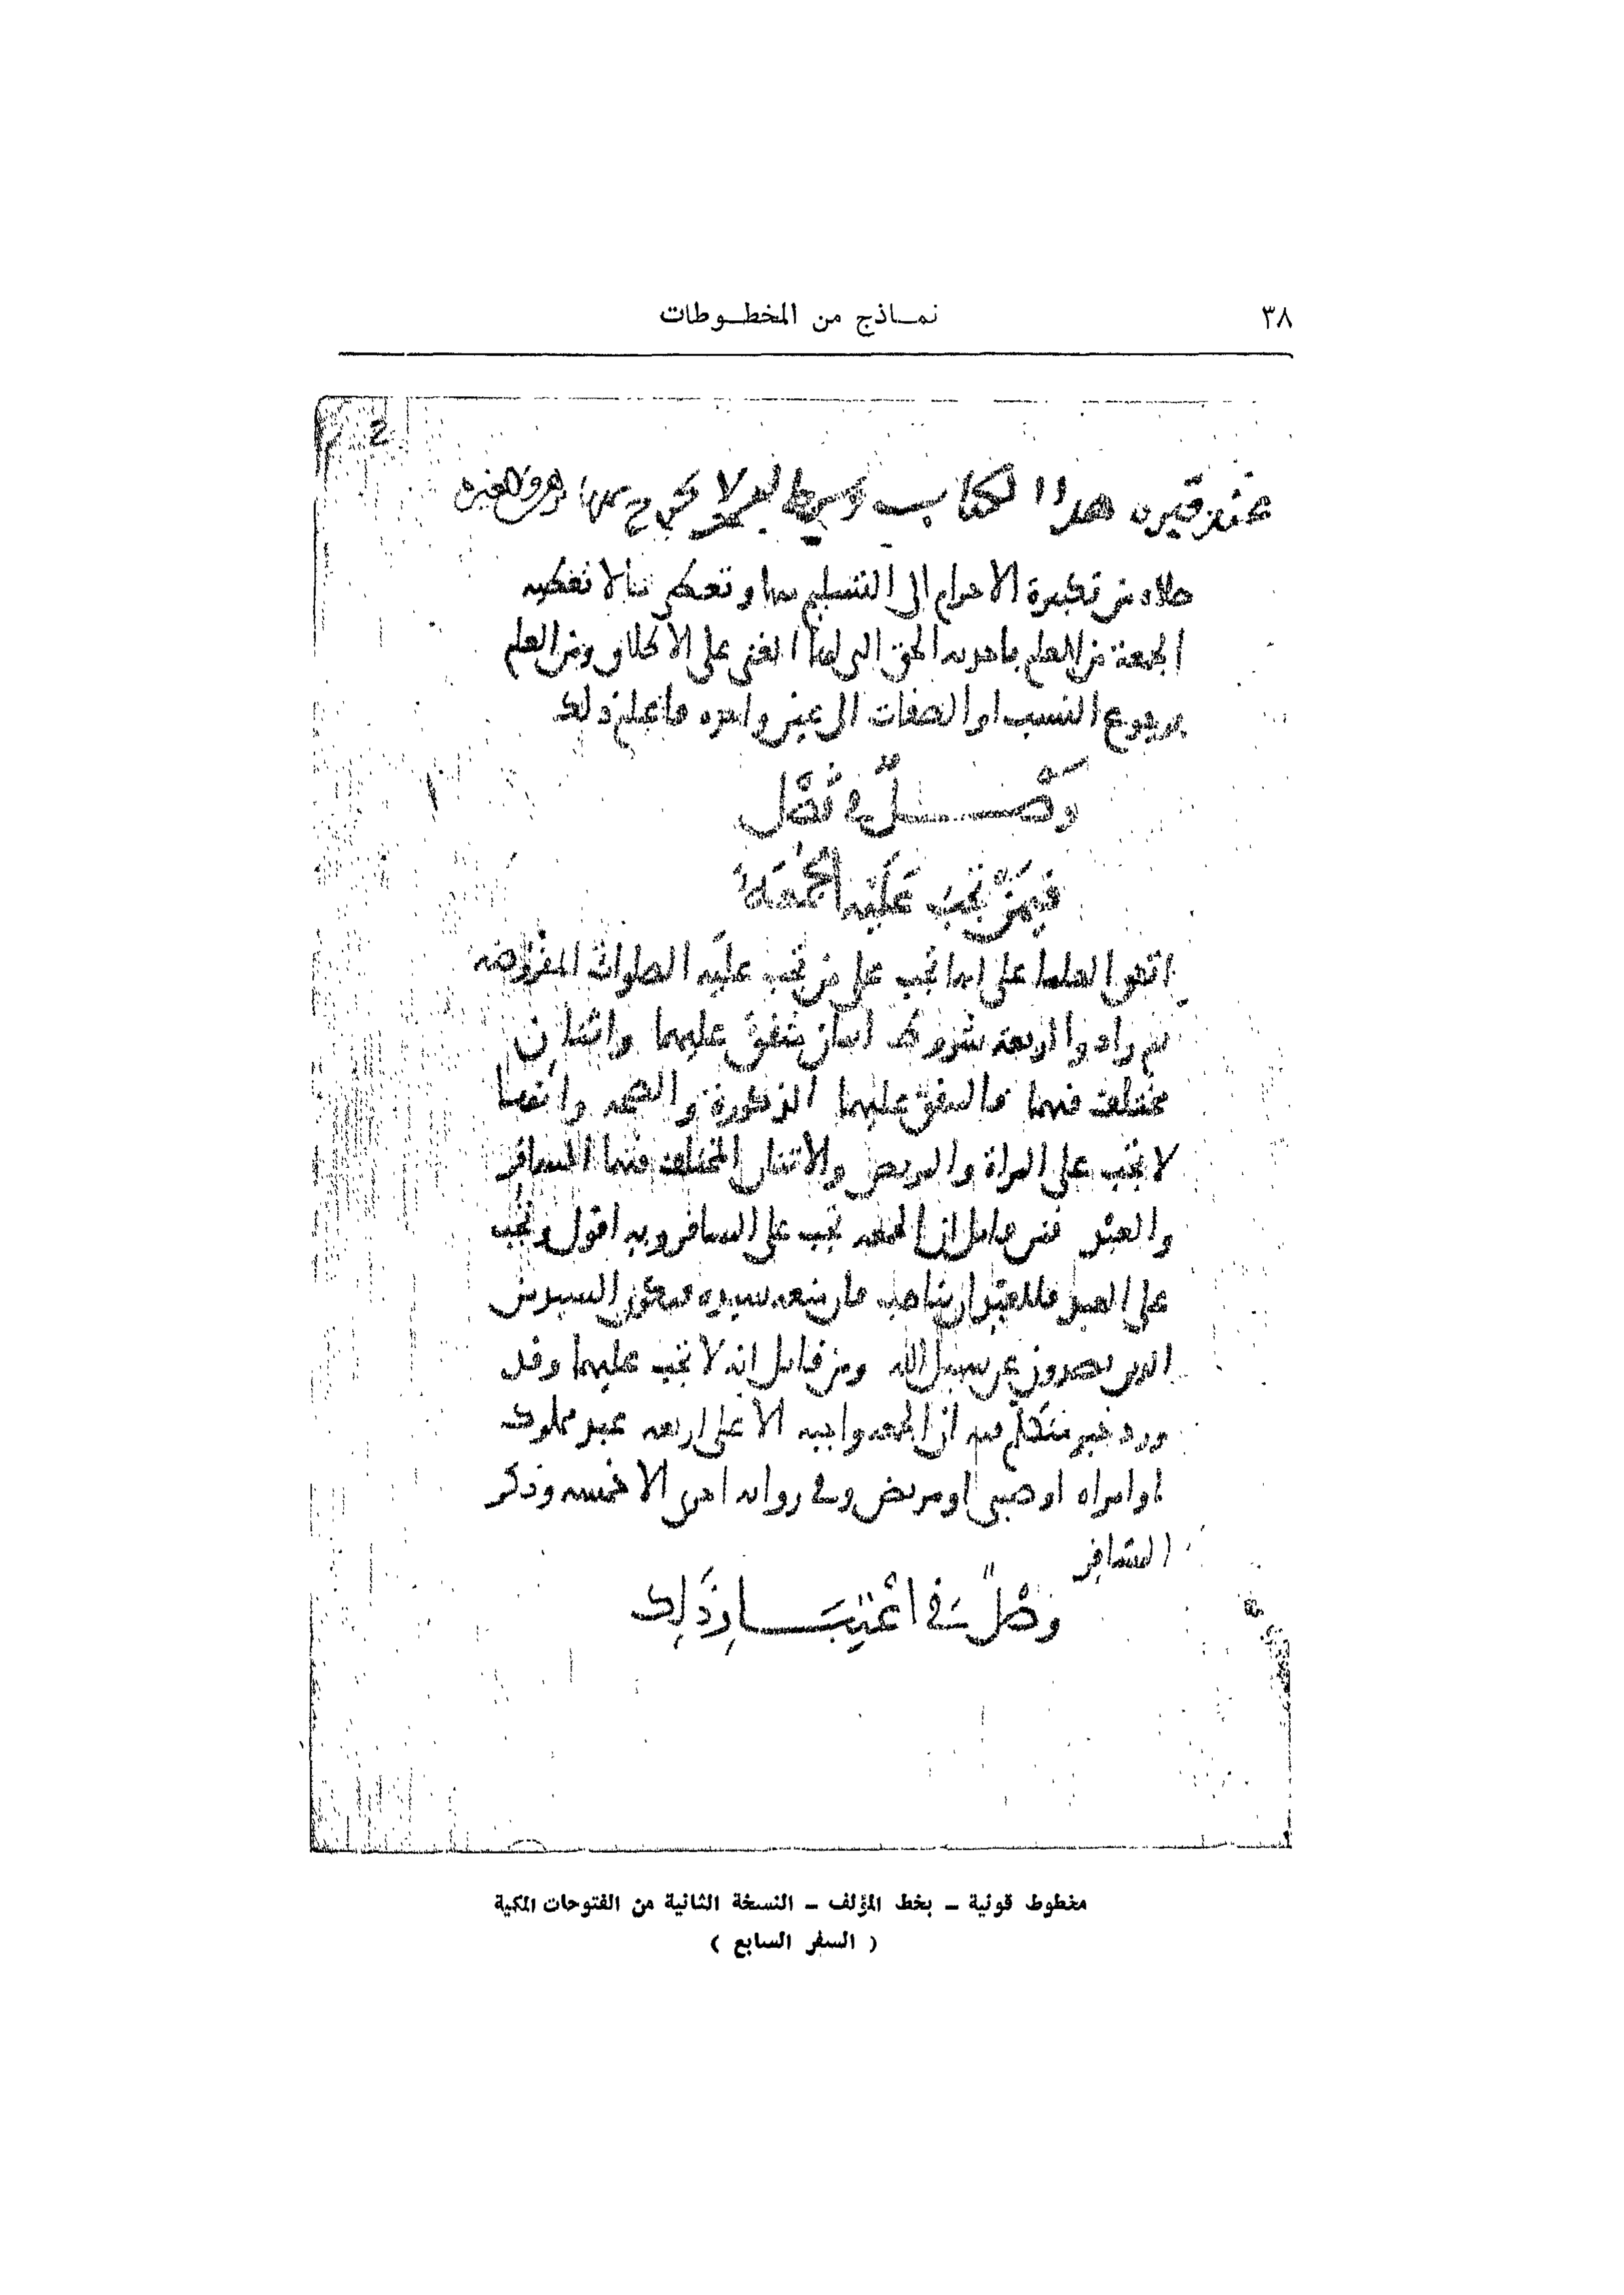 ٣٨
نمـاذج من المخطـوطات
2
عند قبره هذا الكتاب وشرط الا يخرج
صلاه من تكبيرة الاحرام الى التسليم بها وتعطى ما لا تعطيه
الجمعة من العلم بما هو به الحق الى لها الغنى على الاطلاق ومن العلم
برجوع النسب او الصفات الى عين واحده فاعلم ذلك
وَصْـــلٌ في فَصْل
فيمَنْ تجب عَلَيْه الجُمعَة
اتفق العلما على انها تجب على من تجب عليه الصلوات المفروضه
ثم زادوا اربعة شروط اثنان متفق عليهما واثنان
مختلف فيهما فالمتفق عليهما الذكورة والصحه وانها
لا تجب على المراة والمريض والاثنان المختلف فيهما المسافر
والعبد فمن قايل ان الجمعه تجب على المسافر وبه اقول وتجب
على العبد فللعبد ان يتاهب فان منعه سيده فيكون السيد من
الذين يصدون عن سبيل الله ومن قايل انه لا تجب عليهما وقد
ورد خبر متكلم فيه ان الجمعه واجبه الا على اربعه عبد مملوك
او امراه او صبي او مريض وفي روايه اخرى الا خمسه وذكر
المسافر
وَصْلٌ في اعْتِبَـــار ذَلِك
مخطوط قونية – بخط المؤلف – النسخة الثانية من الفتوحات المكية
( السفر السابع )